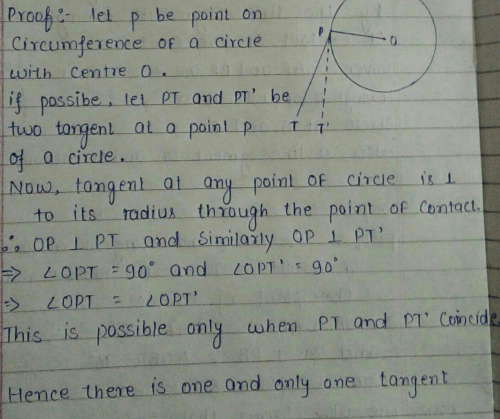 Proof:- let p be point on
Circumference of a circle
with centre O.
if possibe, let PT and PT' be
two tangent at a point p
of a circle.
P
O
T
T'
Now, tangent at any point of circle is ⊥
to its radius through the point of contact.
∴ OP ⊥ PT and similarly OP ⊥ PT'
⇒ ∠OPT = 90° and ∠OPT' = 90°
⇒ ∠OPT = ∠OPT'
This is possible only when PT and PT' Coincide
Hence there is one and only one tangent